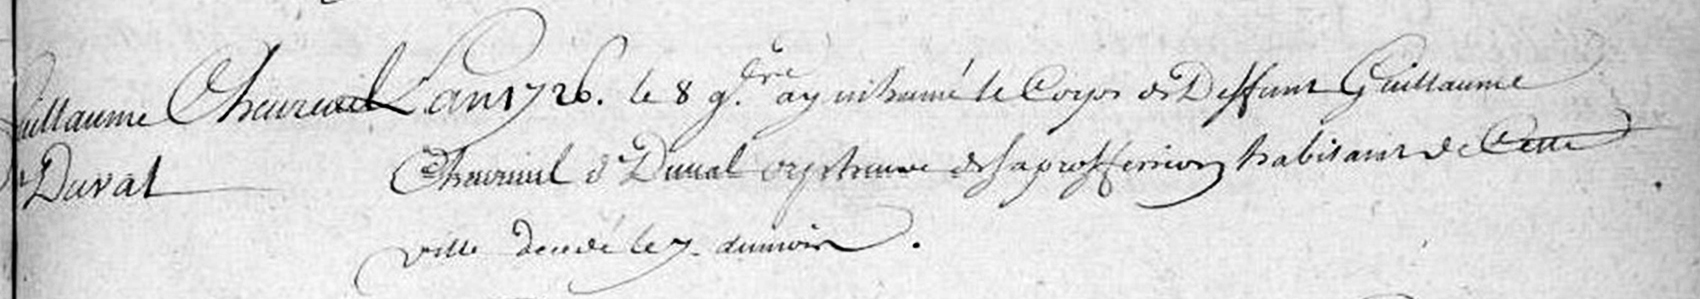 Guillaume Chevreuil L'an 1726. le 8 9.bre ay inhumé le Corps de Deffunt Guillaume
Duval Chevreuil d Duval orphevre de sa proffession habitant de Cette
ville decedé le 7. du mois.